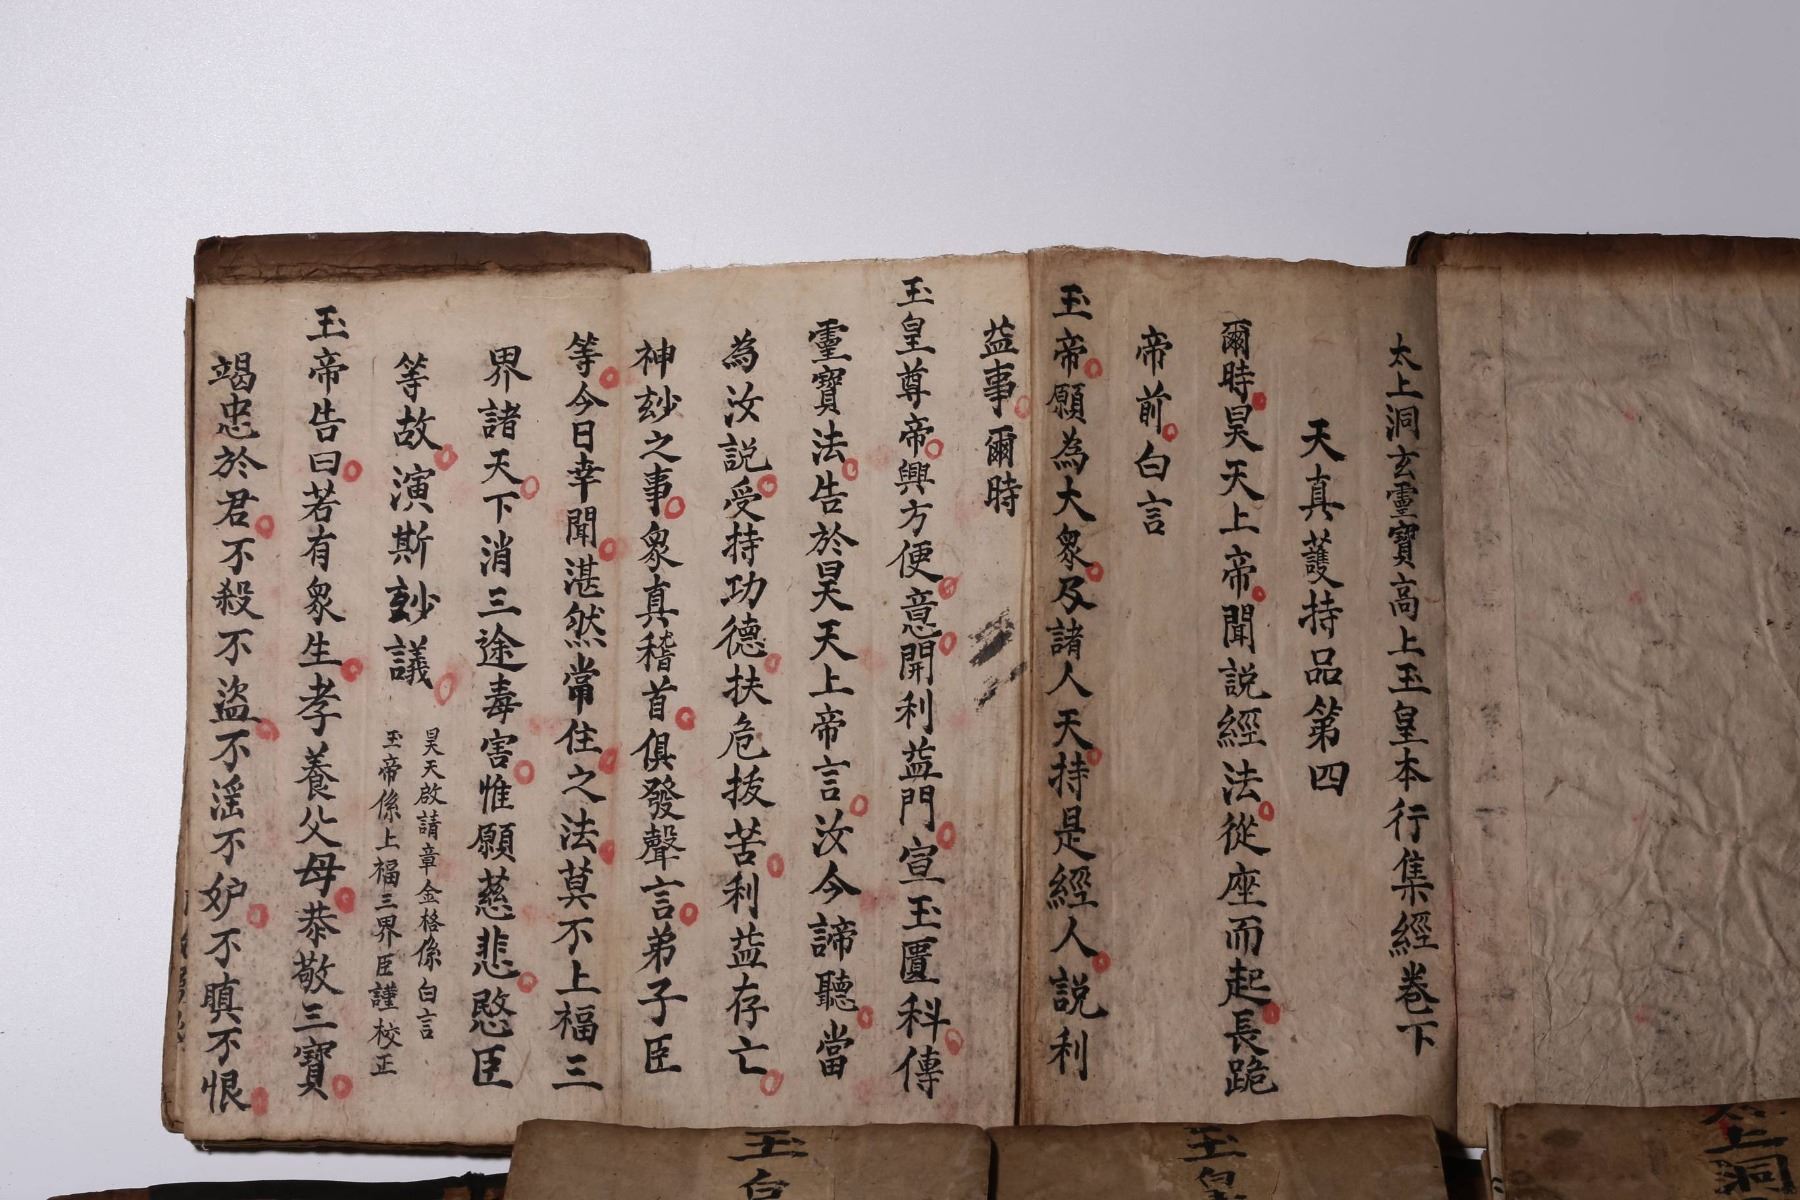 太上洞玄靈寶高上玉皇本行集經卷下
天真護持品第四
爾時昊天上帝聞説經法從座而起長跪
帝前白言
玉帝願為大衆及諸人天持是經人説利
益事爾時
玉皇尊帝興方便意開利益門宣玉匱科傳
靈寶法告於昊天上帝言汝今諦聽當
為汝説受持功德扶危拔苦利益存亡
神玅之事衆真稽首俱發聲言弟子臣
等今日幸聞湛然常住之法莫不上福三
界諸天下消三途毒害惟願慈悲愍臣
等故演斯玅議
昊天啟請章金格係白言
玉帝係上福三界臣謹校正
玉帝告曰若有衆生孝養父母恭敬三寶
竭忠於君不殺不盜不淫不妒不瞋不恨
玉皇
玉皇
太上洞